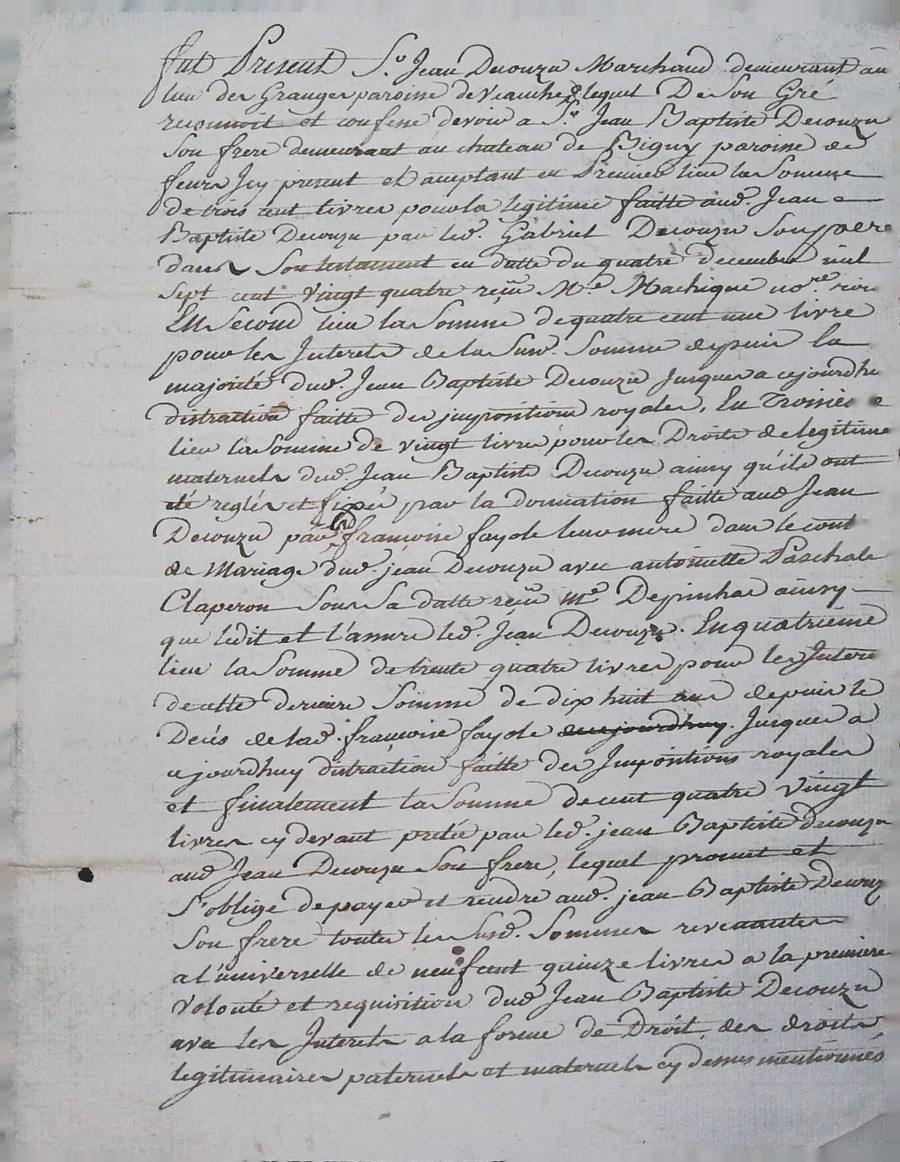 fut Present Sr. Jean Decouzu Marchand demeurant au
lieu des Granges paroisse de Veauche lequel De Son Gré
reconnoit et confesse devoir a Sr. Jean Baptiste Decouzu
Son frere demeurant au chateau de Bigny paroisse de
feurs Icy present et aceptant en Premier lieu la Somme
de trois cent livres pour la legitime faitte aud. Jean
Baptiste Decouzu par led. Gabriel Decouzu Son pere
dans Son testament en datte du quatre decembre mil
Sept cent vingt quatre reçu Me. Machique nore
En Second lieu la Somme de quatre cent une livre
pour les Interets de la Susd. Somme depuis la
majorité dud. Jean Baptiste Decouzu Jusques a cejourdhu
distraction faitte des impositions royales, En Troisiè e
lieu la Somme de vingt livres pour les Droits de legitime
maternels dud. Jean Baptiste Decouzu ainsy qu'ils ont
eté reglés et fixés par la donnation faitte aud Jean
Decouzu par françoise fayole leur mere dans le cont
de Mariage dud. jean Decouzu avec antoinette Paschale
Claperon Sous Sa datte reçu Me Depinhac ainsy
que ledit et l'assure led. Jean Decouzu. En quatrieme
lieu la Somme de trente quatre livres pour les Intere
de cette derniere Somme de dix huit ans depuis le
Decés de lad. françoise fayole cejourdhuy. Jusques a
cejourdhuy distraction faitte des Impositions royales
et finalement la Somme de cent quatre vingt
livres cy devant pretée par led. jean Baptiste decouzu
aud Jean Decouzu Son frere, lequel promet et
S'oblige de payer et rendre aud. jean Baptiste Decouz
Son frere toutes les Susd. Sommes revenantes
a l'universelle de neuf cent quinze livres a la premiere
Volonté et requisition dud Jean Baptiste Decouzu
avec les Interets a la forme de Droit des droits
legitimaires paternels et maternels cy dessus mentionnés